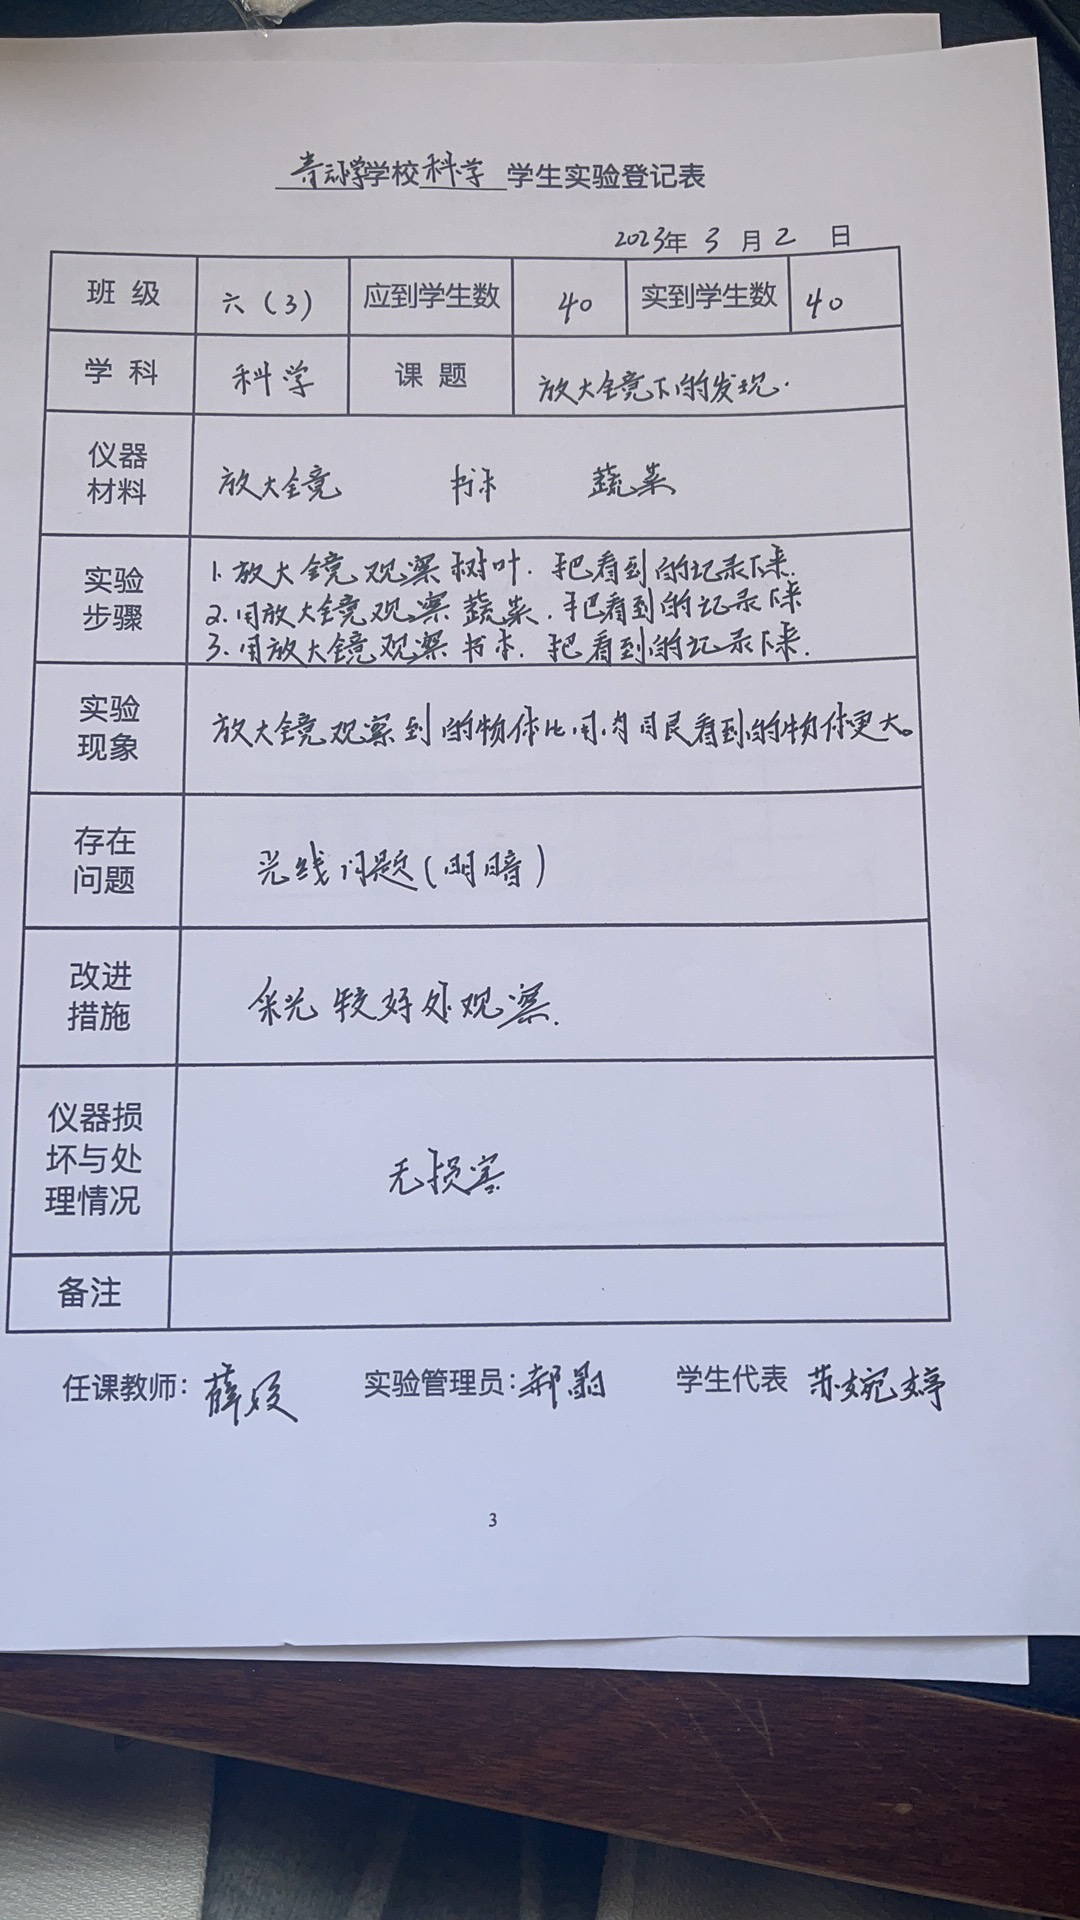 学校科学 学生实验登记表
2023年 3 月 2 日
班 级 六(3) 应到学生数 40 实到学生数 40
学 科 科学 课 题 放大镜下的发现.
仪器
材料
放大镜 书本 蔬菜
实验
步骤
1. 放大镜观察树叶. 把看到的记录下来.
2. 用放大镜观察蔬菜. 把看到的记录下来
3. 用放大镜观察书本. 把看到的记录下来.
实验
现象
放大镜观察到的物体比用肉目艮看到的物体更大。
存在
问题
光线问题(明暗)
改进
措施
采光较好处观察.
仪器损
坏与处
理情况
无损害
备注
任课教师: 薛 实验管理员: 郝 学生代表 苏婉婷
3